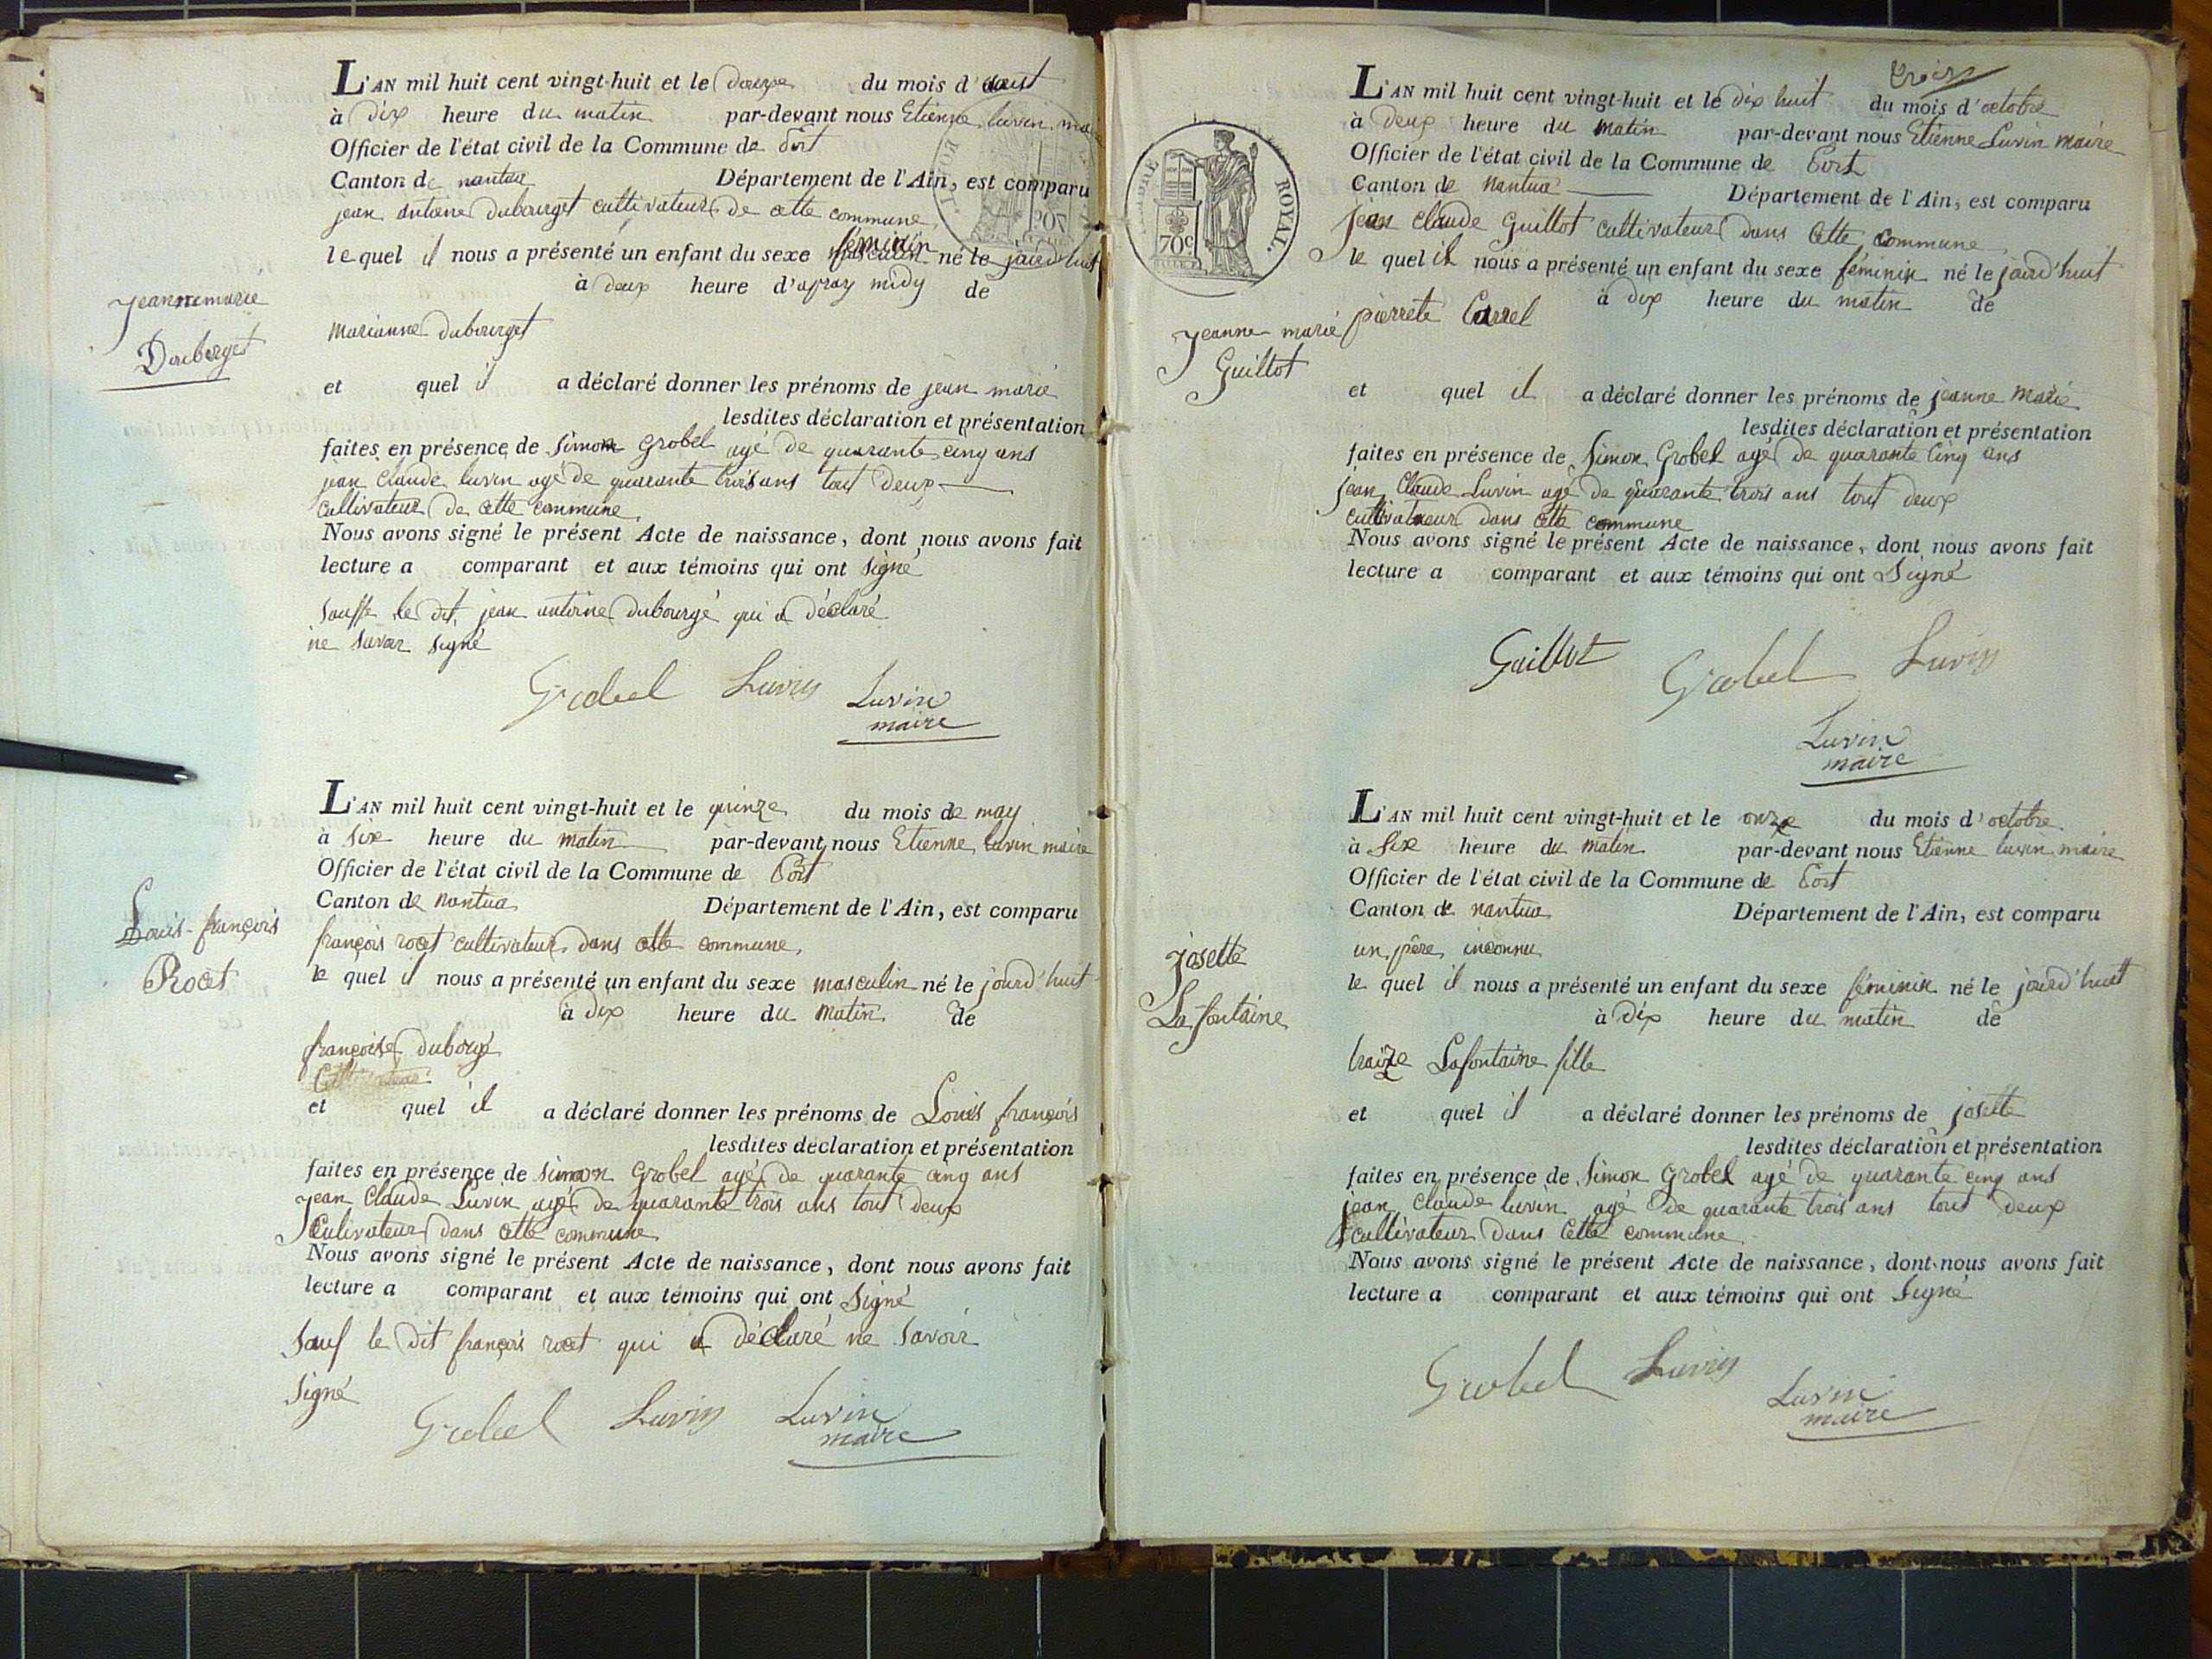 L'AN mil huit cent vingt-huit et le douze du mois d'aout
à dix heure du matin par-devant nous Etienne luvin
Officier de l'état civil de la Commune de Port
Canton de nantua Département de l'Ain, est comparu
jean antoine dubourget cultivateur de cette commune
le quel il nous a présenté un enfant du sexe féminin né le jourd'huit
à deux heure d'apray midy de
marianne dubourget
Jeannemarie
Duborget
et quel il a déclaré donner les prénoms de jean marie
lesdites déclaration et présentation
faites en présence de Simon Grobel agé de quarante cinq ans
jean Claude luvin agé de quarante trois ans tout deux
cultivateur de cette commune
Nous avons signé le présent Acte de naissance, dont nous avons fait
lecture a comparant et aux témoins qui ont signé
sauffe le dit jean antoine dubourgé qui a déclaré
ne savoir signé
Grobel Luvin Luvin
maire
L'AN mil huit cent vingt-huit et le quinze du mois de may
à six heure du matin par-devant nous Etienne luvin maire
Officier de l'état civil de la Commune de Port
Canton de nantua Département de l'Ain, est comparu
françois roct cultivateur dans cette commune
le quel il nous a présenté un enfant du sexe masculin né le jourd'huit
à dix heure du matin de
Louis-françois
Roct
françoise duborgé
et quel il a déclaré donner les prénoms de Louis françois
lesdites déclaration et présentation
faites en présence de simon Grobel agé de quarante cinq ans
jean Claude Luvin agé de quarante trois ans tout deux
Culivateur dans cette commune
Nous avons signé le présent Acte de naissance, dont nous avons fait
lecture a comparant et aux témoins qui ont signé
Sauf le dit françois roct qui a déclaré ne savoir
signé
Grobel Luvin Luvin
maire
TIMBRE ROYAL.
70c
L'AN mil huit cent vingt-huit et le dix huit du mois d'octobre
à deux heure du matin par-devant nous Etienne Luvin maire
Officier de l'état civil de la Commune de Port
Canton de nantua Département de l'Ain, est comparu
jean claude Guillot cultivateur dans cette commune
le quel il nous a présenté un enfant du sexe féminin né le jourd'huit
à dix heure du matin de
Jeanne-marie
Guillot
pierrete Carrel
et quel il a déclaré donner les prénoms de jeanne marie
lesdites déclaration et présentation
faites en présence de Simon Grobel agé de quarante cinq ans
jean Claude Luvin agé de quarante trois ans tout deux
cultivateur dans cette commune
Nous avons signé le présent Acte de naissance, dont nous avons fait
lecture a comparant et aux témoins qui ont Signé
Guillot Grobel Luvin
Luvin
maire
L'AN mil huit cent vingt-huit et le onze du mois d'octobre
à six heure du matin par-devant nous Etienne luvin maire
Officier de l'état civil de la Commune de Port
Canton de nantua Département de l'Ain, est comparu
un père inconnu
le quel il nous a présenté un enfant du sexe féminin né le jourd'huit
à dix heure du matin de
josette
La-fontaine
traize Lafontaine fille
et quel il a déclaré donner les prénoms de josette
lesdites déclaration et présentation
faites en présence de Simon Grobel agé de quarante cinq ans
jean Claude luvin agé de quarante trois ans tout deux
cultivateur dans cette commune
Nous avons signé le présent Acte de naissance, dont nous avons fait
lecture a comparant et aux témoins qui ont signé
Grobel Luvin Luvin
maire